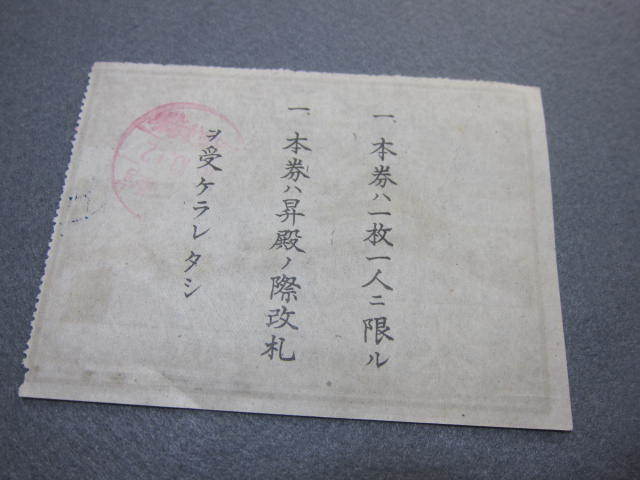 一、本券ハ一枚一人ニ限ル
一、本券ハ昇殿ノ際改札
ヲ受ケラレタシ